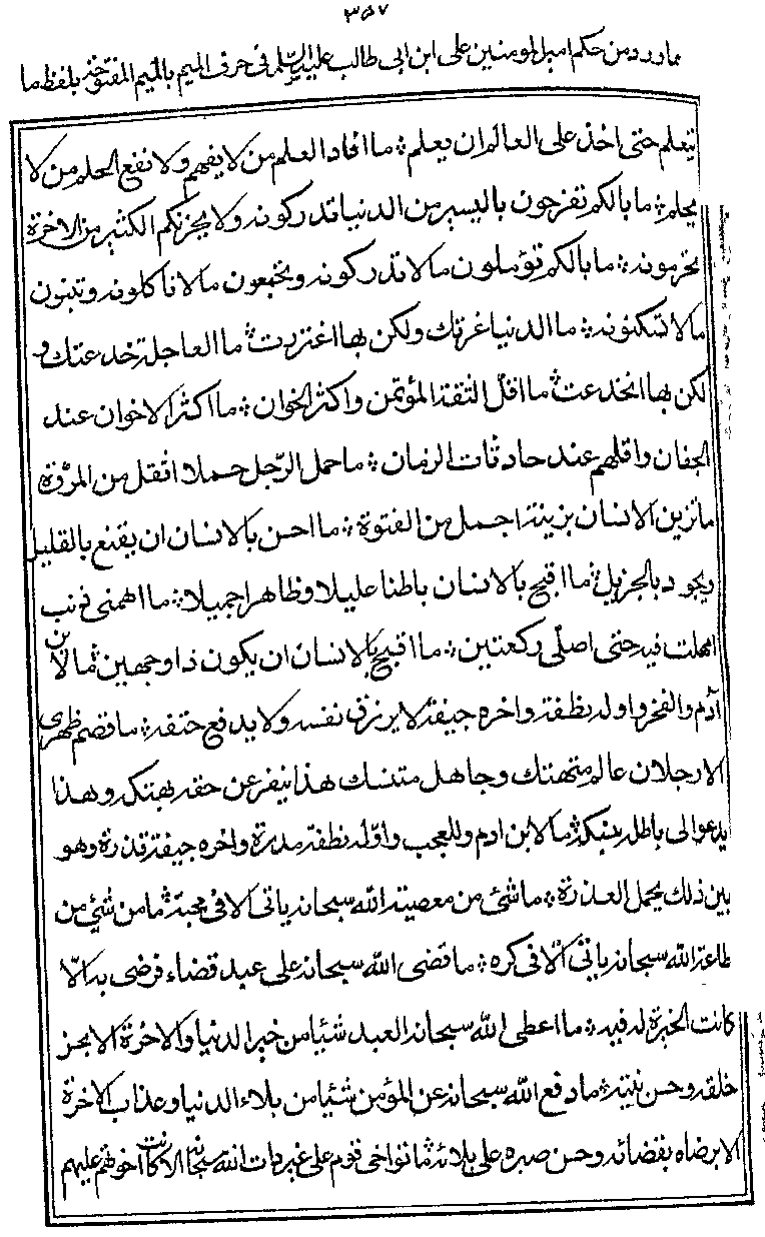 ٣٥٧
ماورد من حكم امير المومنين على ابن ابى طالب عليه السلم فى حرف الميم بالميم المفتوحة بلفظ ما
يتعلم حتى اخذ على العالم ان يعلم ؛ ما افاد العلم من لا يفهم ولا نفع الحلم من لا
يحلم ؛ ما بالكم تفرحون باليسير من الدنيا تدركونه ولا يحزنكم الكثير من الاخرة
تحرمونه ؛ ما بالكم تؤملون مالا تدركونه وتجمعون مالا تاكلونه وتبنون
مالا تسكنونه ؛ ما الدنيا غرتك ولكن بها اغتررت ؛ ما العاجلة خدعتك و
لكن بها انخدعت ؛ ما اقل الثقة المؤتمن واكثر الخوان ؛ ما اكثر الاخوان عند
الجفان واقلهم عند حادثات الزمان ؛ ما حمل الرّجل حملا اثقل من المروّة
ما تزين الانسان بزينة اجمل من الفتوة ؛ ما احسن بالانسان ان يقنع بالقليل
ويجود بالجزيل ؛ ما اقبح بالانسان باطنا عليلا وظاهرا جميلا ؛ ما اهمنى ذنب
امهلت فيه حتى اصلّى ركعتين ؛ ما اقبح بالانسان ان يكون ذا وجهين ؛ ما لابن
آدم والفخر واوله نطفة واخره جيفة لا يرزق نفسه ولا يدفع حتفه ؛ ما قصم ظهرى
الا رجلان عالم متهتك وجاهل متنسك هذا ينفر عن حقه بهتكه وهذا
يدعوا الى باطله بنسكه ؛ ما لابن ادم وللعجب واوّله نطفة مذرة واخره جيفة قذرة وهو
بين ذلك يحمل العذرة ؛ ما شئ من معصية الله سبحانه ياتى الا فى محبة ؛ ما من شئ من
طاعة الله سبحانه ياتى الّا فى كره ؛ ما قضى الله سبحانه على عبد قضاء فرضى به الّا
كانت الخيرة له فيه ؛ ما اعطى الله سبحانه العبد شيئا من خير الدنيا والاخرة الا بحسن
خلقه وحسن نيته ؛ ما دفع الله سبحانه عن المؤمن شيئا من بلاء الدنيا وعذاب الاخرة
الا برضاه بقضائه وحسن صبره على بلائه ؛ ما تواخى قوم على غير ذات الله سبحانه الا كانت اخوتهم عليهم